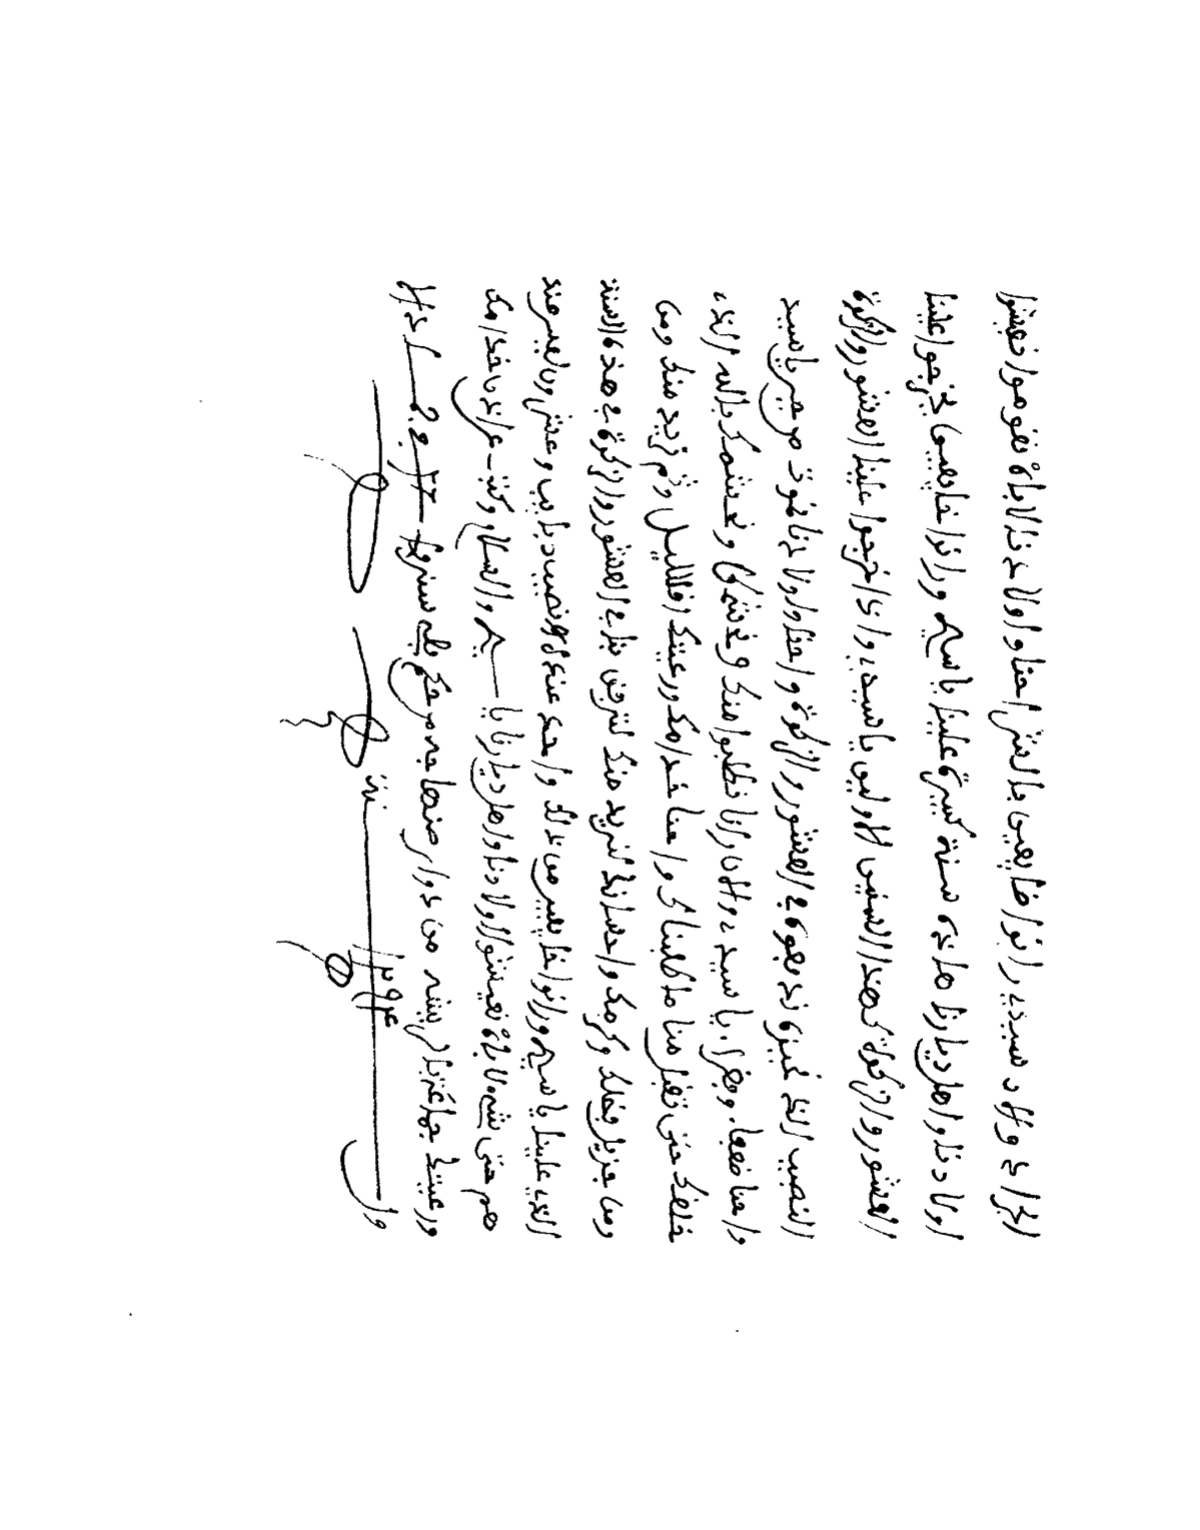 الجراد والاد سيدي رانوا ضايعين بالشر احنا واولادنا لاباه نقوموا نعيشوا
اولادنا واهل ديارنا هاذه سنة كبيرة علينا يا سيدي ورانوا ضايعين يخرجوا علينا
العشور والزكوة كهذا السنين الاولين يا سيدي واذا خرجوا علينا العشور والزكوة
النصيب الذ ندفعوه في العشور والزكوة واحنا واولادنا نموت يا سيد
واحنا ضعفاء وفقراء يا سيدي والان رانا نطلبوا منك ونخشمك بالله الذي
خلقك حتى تقبل منا ما طلبناك واحنا خدامك ورعيتك اقلاليل وثم نزيد منك ومن
ومن جزيل فضلك وكرمك واحسانك لنريد منك لترفق بنا في العشور والزكوة في هذه السنة
الذي علينا يا سيدي ورانوا ضايعين من ذلك واحد عنده نصيب وعشرون ليس عند
هم حتى شيء لاباه نعيشوا اولادنا واهل ديارنا يا سيدي والسلام وكتب عن اذن خدامك
ورعيتك جماعة من دوار صنهاجه من حكم ٢٣ جمادا ال
ول سنة ١٢٩٤